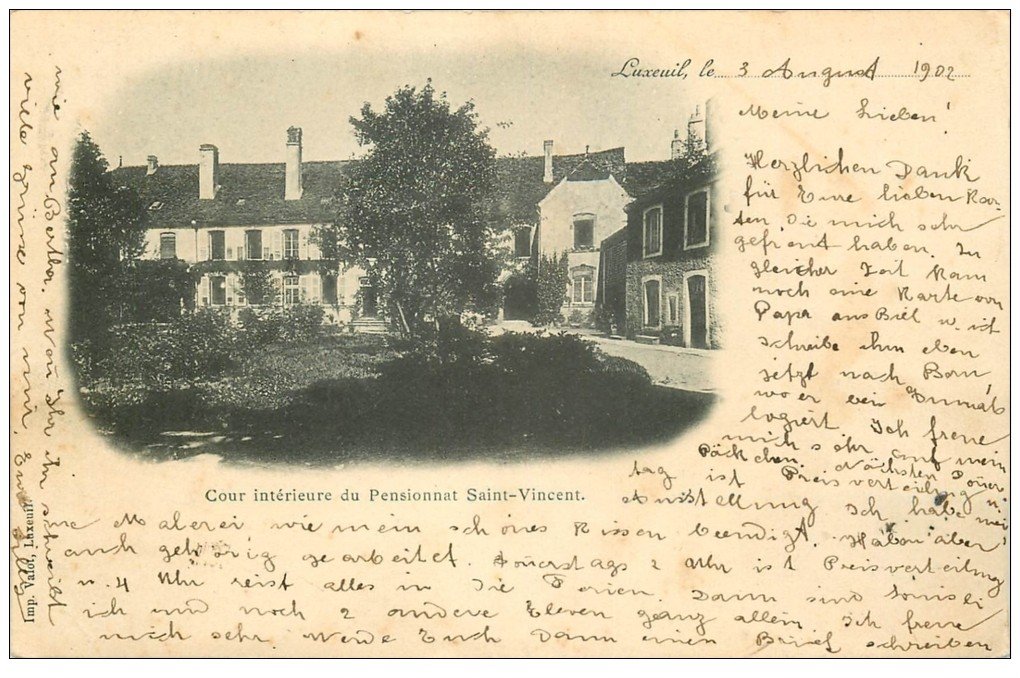 Luxeuil, le 3 August 1902
Meine Lieben!
Herzlichen Dank
für Eure lieben Kar
ten, die mich sehr
gefreut haben. Zu
gleicher Zeit kam
noch eine Karte von
Papa aus Biel u. ich
schreibe ihm eben
jetzt nach Bonn,
wo er bei Dumals
logiert. Ich freue
mich sehr auf mein
Päckchen. Nächsten Doner
tag ist Preisverteilung u.
Ausstellung Ich habe mei
ne Malerei wie mein schönes Kissen beendigt. Haben aber
auch gehörig gearbeitet. Donerstags 2 Uhr ist Preisverteilung
u. 4 Uhr reist alles in die Ferien. Dann sind
ich und noch 2 andere Eleven ganz allein. Ich freue
mich sehr werde Euch dann einen Brief schreiben
wie an Berthy. Wenn Ihr ihr schreibt
wille Grüsse von mir. Eure
Cour intérieure du Pensionnat Saint-Vincent.
Imp. Valot, Luxeuil